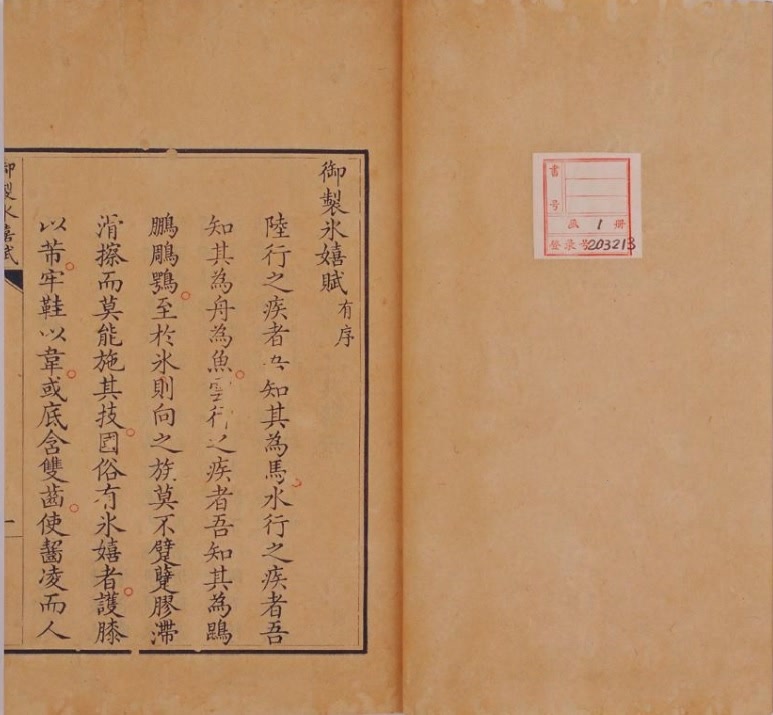 書号
函 1 册
登录号203213
御製氷嬉賦 有序
陸行之疾者吾知其為馬水行之疾者吾
知其為舟為魚雲行之疾者吾知其為鵾
鵬鵰鶚至於氷則向之族莫不躄躠膠滯
滑擦而莫能施其技國俗有氷嬉者護膝
以芾牢鞋以韋或底含雙齒使齧凌而人
御製氷嬉賦
一